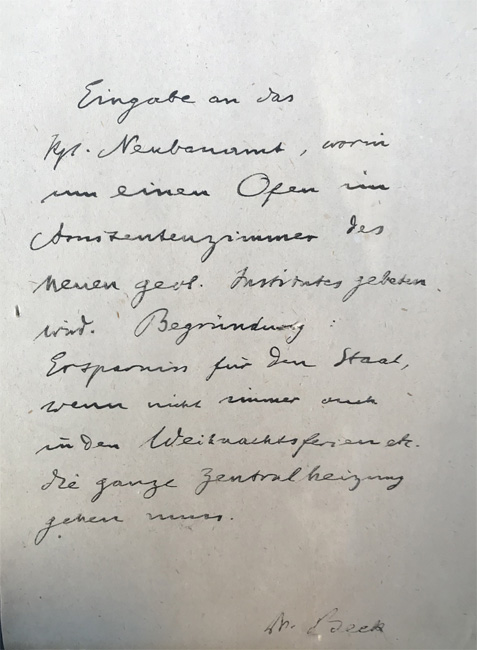 Eingabe an das
Kgl. Neubauamt, worin
um einen Ofen im
Assistentenzimmer des
neuen geol. Institutes gebeten
wird. Begründung:
Ersparniss für den Staat,
wenn nicht immer auch
in den Weihnachtsferien etc.
die ganze Zentralheizung
gehen muss.
Dr. Beck